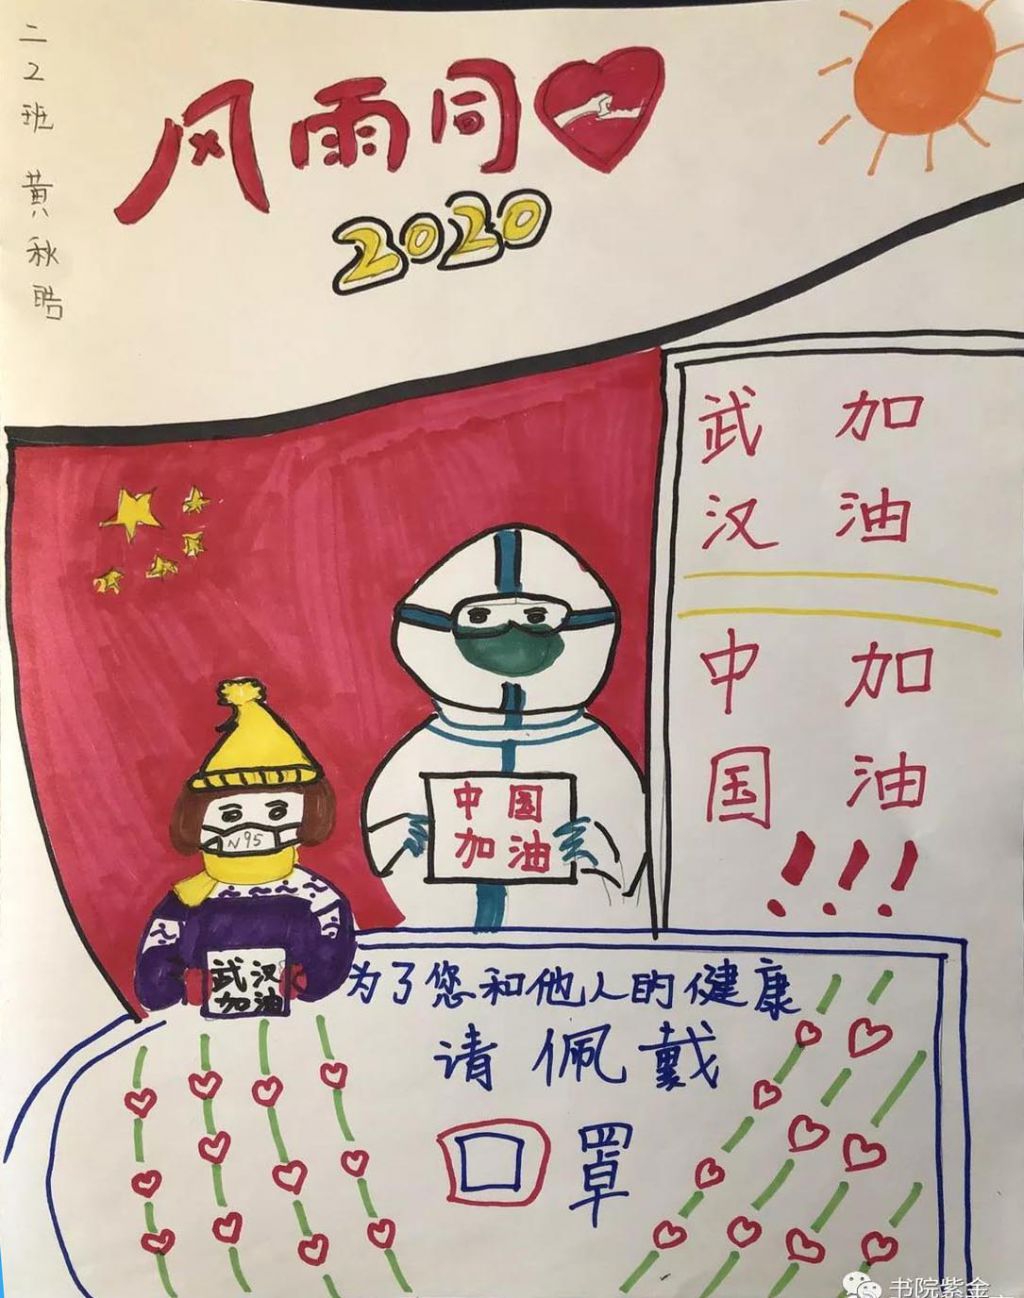 二2班 黄秋皓
风雨同
2020
武汉
加油
中国
加油
!!!
中国
加油
N95
武汉
加油
为了您和他人的健康
请佩戴
口罩
书院紫金